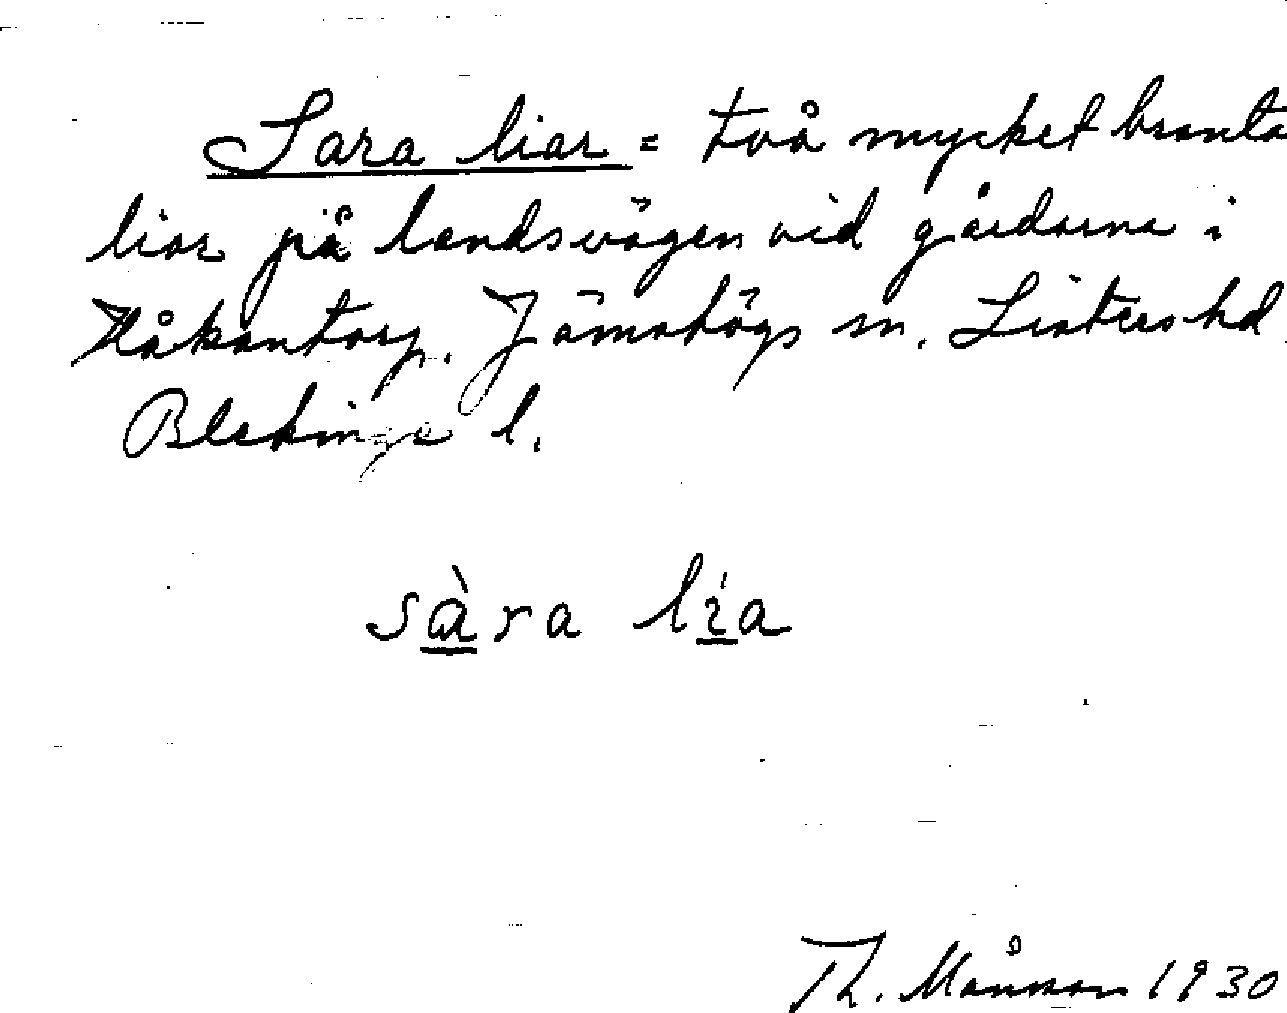 Sara liar = två mycket branta
liar på landsvägen vid gårdarna i
Håkantorp. Jämshögs sn. Listers hd
Blekinge l.
sàra lía
Th. Månsson 1930